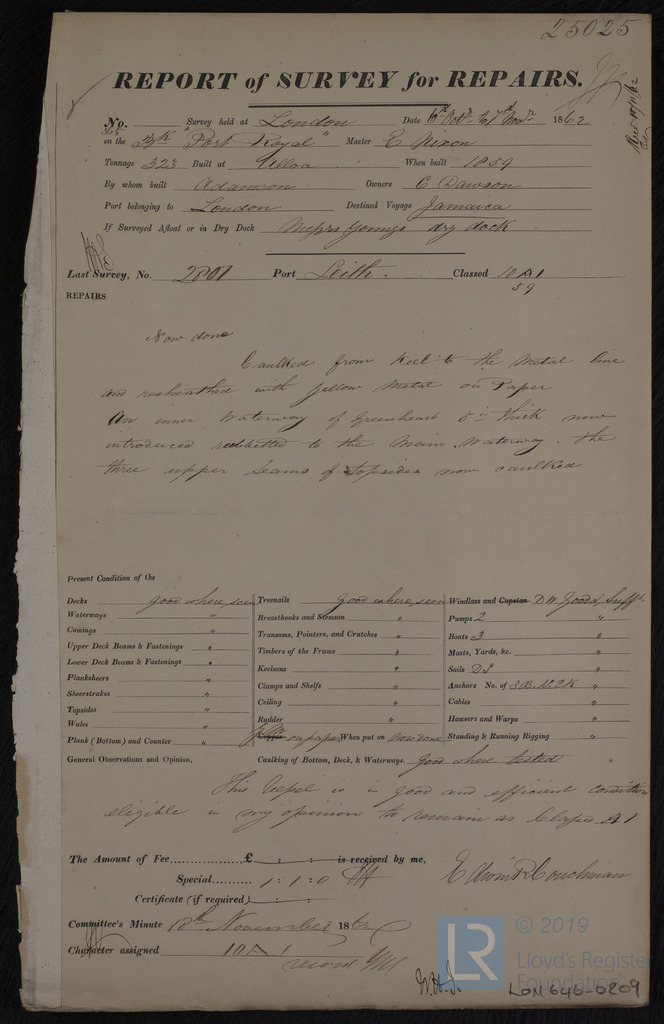 25025
REPORT of SURVEY for REPAIRS.
No. Survey held at London Date 6th Octr. to 7th Novr. 1862
on the Bk "Port Royal" Master E Nixon
Tonnage 323 Built at Alloa When built 1859
By whom built Adamson Owners C Dawson
Port belonging to London Destined Voyage Jamaica
If Surveyed Afloat or in Dry Dock Messrs Youngs dry dock
Last Survey, No. 2801 Port Leith. Classed 10 A 1
59
REPAIRS
Now done
Caulked from Keel to the Metal line
and resheathed with yellow Metal on Paper
An inner Waterway of Greenheart 5 in thick now
introduced rabbitted to the Main Waterway. The
three upper seams of Topsides now caulked
Present Condition of the
Decks good where seen Treenails good where seen Windlass and Capstan D.W. Good &
Waterways " Breasthooks and Stemson " Pumps 2 "
Comings " Transoms, Pointers, and Crutches " Boats 3 "
Upper Deck Beams & Fastenings " Timbers of the Frame " Masts, Yards, &c. "
Lower Deck Beams & Fastenings " Keelsons " Sails DS "
Planksheers " Clamps and Shelfs " Anchors No. of 3B. 1S. 2K "
Sheerstrakes " Ceiling " Cables "
Topsides " Rudder " Hawsers and Warps "
Wales " Copper on paper When put on Now done Standing & Running Rigging "
Plank (Bottom) and Counter "
General Observations and Opinion, Caulking of Bottom, Deck, & Waterways. Good where tested
This Vessel is in good and efficient condition
eligible in my opinion to remain as Classed A 1
The Amount of Fee £ : : is received by me,
Special 1 : 1 : 0
Certificate (if required) : :
Edwin R Couchman
Committee's Minute 18th November 1862
Character assigned 10 A 1
W.H.J.
LR
© 2019
Lloyd's Register
Foundation
LON 646-0209